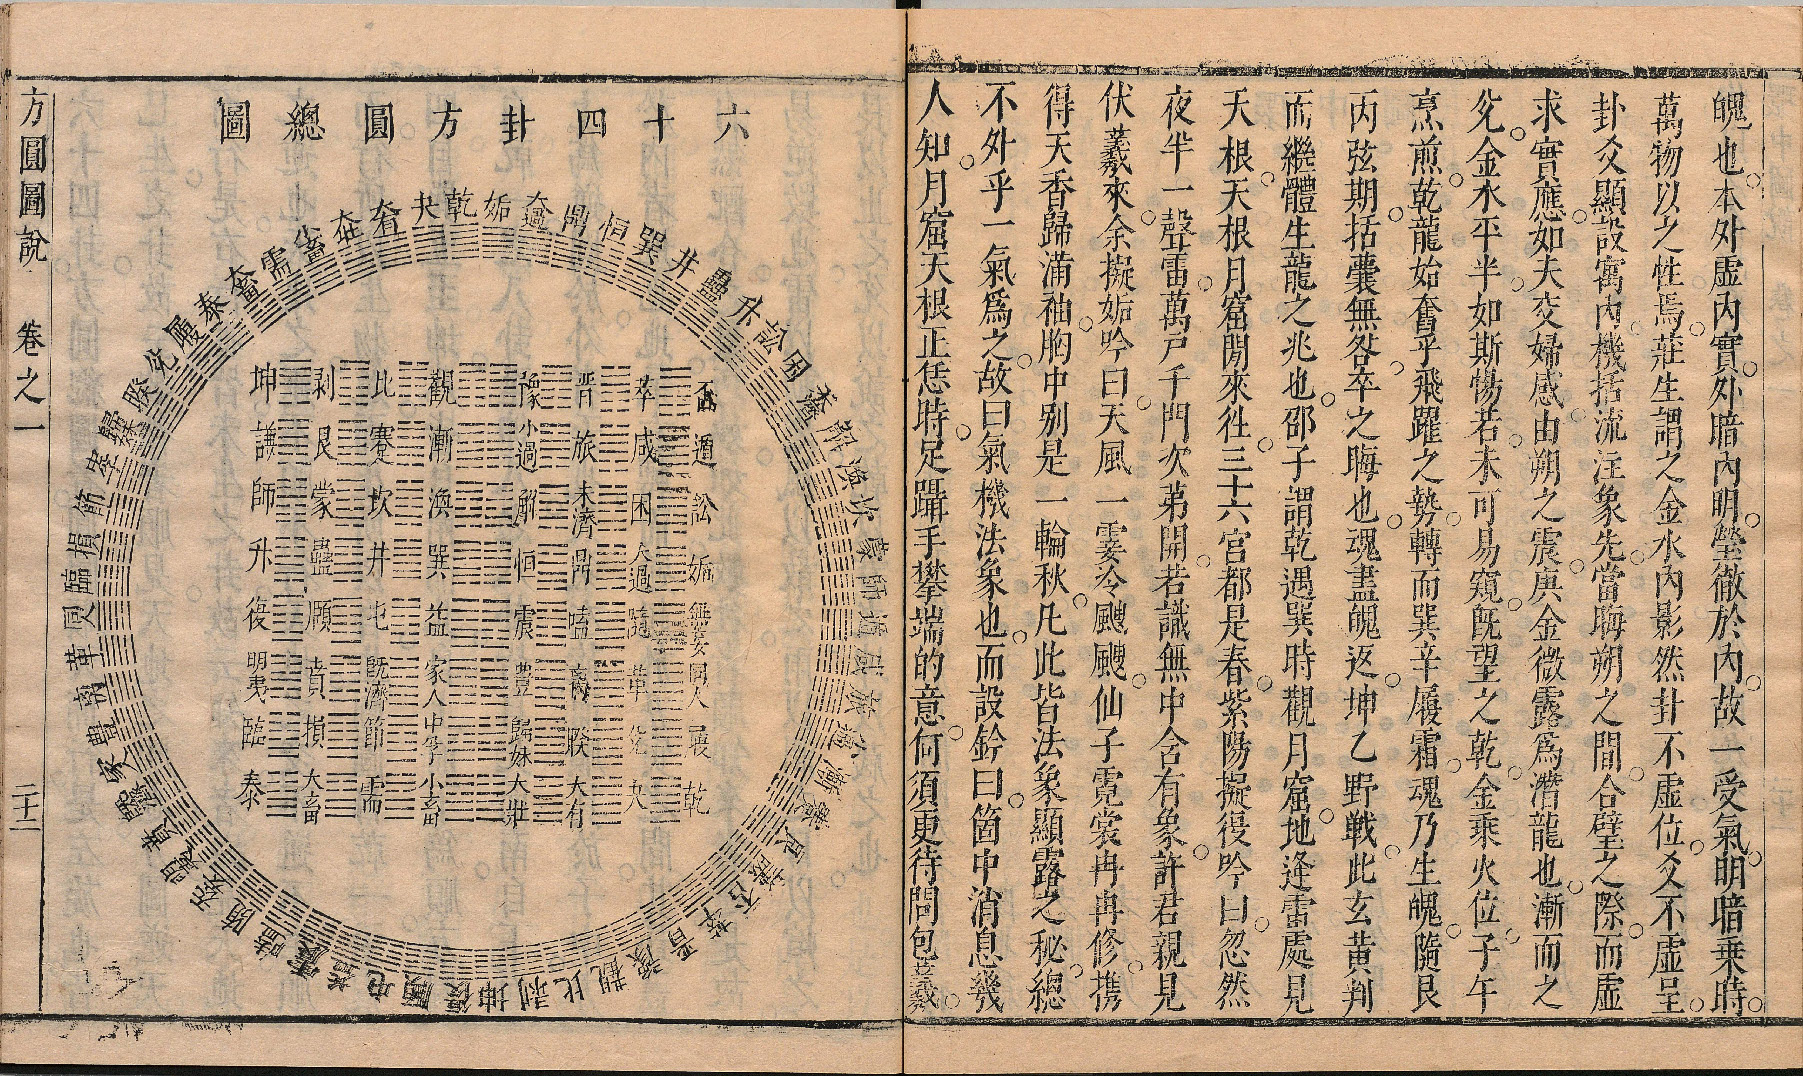 魄也本外虛内實外暗内明瑩徹於内故一受氣明暗乗時
萬物以之性焉莊生謂之金水内影然卦不虛位爻不虛呈
卦爻顯設寓内機括流注象先當晦朔之間合璧之際而虛
求實應如夫交婦感由朔之震庚金微露爲潛龍也漸而之
兊金水平半如斯惕若未可易窺既望之乾金乘火位子午
烹煎乾龍始奮乎飛躍之勢轉而巽辛履霜魂乃生魄隨艮
丙弦期括囊無咎卒之晦也魂盡魄返坤乙野戦此玄黄判
而繼體生龍之兆也邵子謂乾遇巽時觀月窟地逢雷處見
天根天根月窟閒來徃三十六宫都是春紫陽擬復吟曰忽然
夜半一聲雷萬戸千門次第開若識無中含有象許君親見
伏羲來余擬姤吟曰天風一霎冷颼颼仙子霓裳冉冉修携
得天香歸滿袖胸中别是一輪秋凡此皆法象顯露之秘總
不外乎一氣爲之故曰氣機法象也而設鈐曰箇中消息幾
人知月窟天根正恁時足躡手攀端的意何須更待問包羲
六十四卦方圓總圖
乾夬有壯畜需畜泰履兊睽歸妹孚節損臨同人革離豐家人既濟賁明夷无妄隨噬嗑震益屯頤復
姤大過鼎恒巽井蠱升訟困未濟解渙坎蒙師遯咸旅小過漸蹇艮謙否萃晉豫觀比剥坤
否 萃 晋 豫 觀 比 剥 坤
遁 咸 旅 小過 漸 蹇 艮 謙
訟 困 未濟 解 渙 坎 蒙 師
姤 大過 鼎 恒 巽 井 蠱 升
無妄 隨 嗑 震 益 屯 頤 復
同人 革 離 豊 家人 既濟 賁 明夷
履 兊 睽 歸妹 中孚 節 損 臨
乾 夬 大有 大壯 小畜 需 大畜 泰
方圓圖說 卷之一 二十二